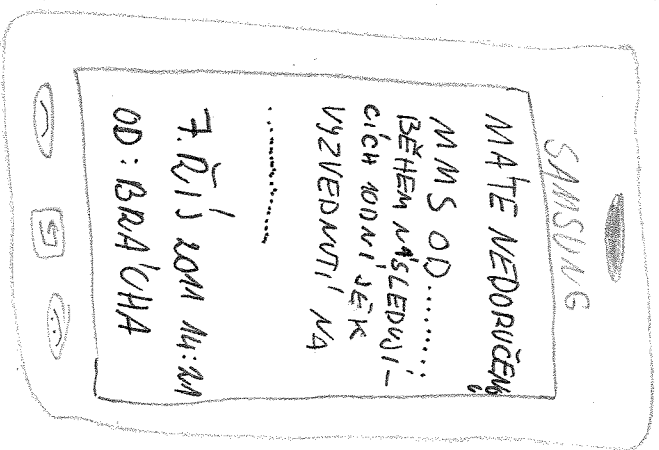 SAMSUNG
MÁTE NEDORUČENÉ
MMS OD.........
BĚHEM NÁSLEDUJÍ-
CÍCH 10DNÍ JE K
VYZVEDNUTÍ NA
...............
7. ŘÍJ 2011 14:21
OD: BRÁCHA